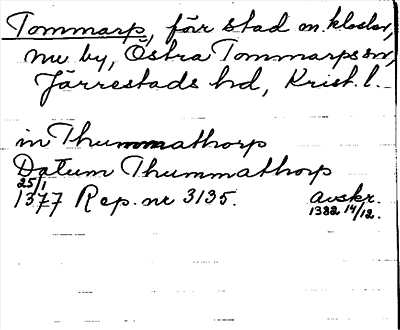 Tommarp, förr stad m. kloster,
nu by, Östra Tommarps sn,
Järrestads hd, Krist. l.
in Thummathorp
Datum Thummathorp
25/1
1377 Rep. nr 3135. avskr.
1382 14/12.